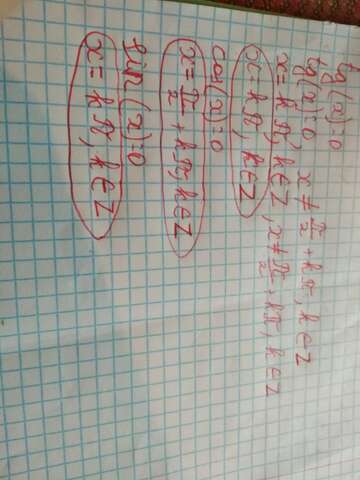 tg(x)=0
tg(x)=0 x≠π/2+kπ, k∈Z
x=kπ, k∈Z, x≠π/2+kπ, k∈Z
x=kπ, k∈Z
cos(x)=0
x=π/2+kπ, k∈Z
sin(x)=0
x=kπ, k∈Z